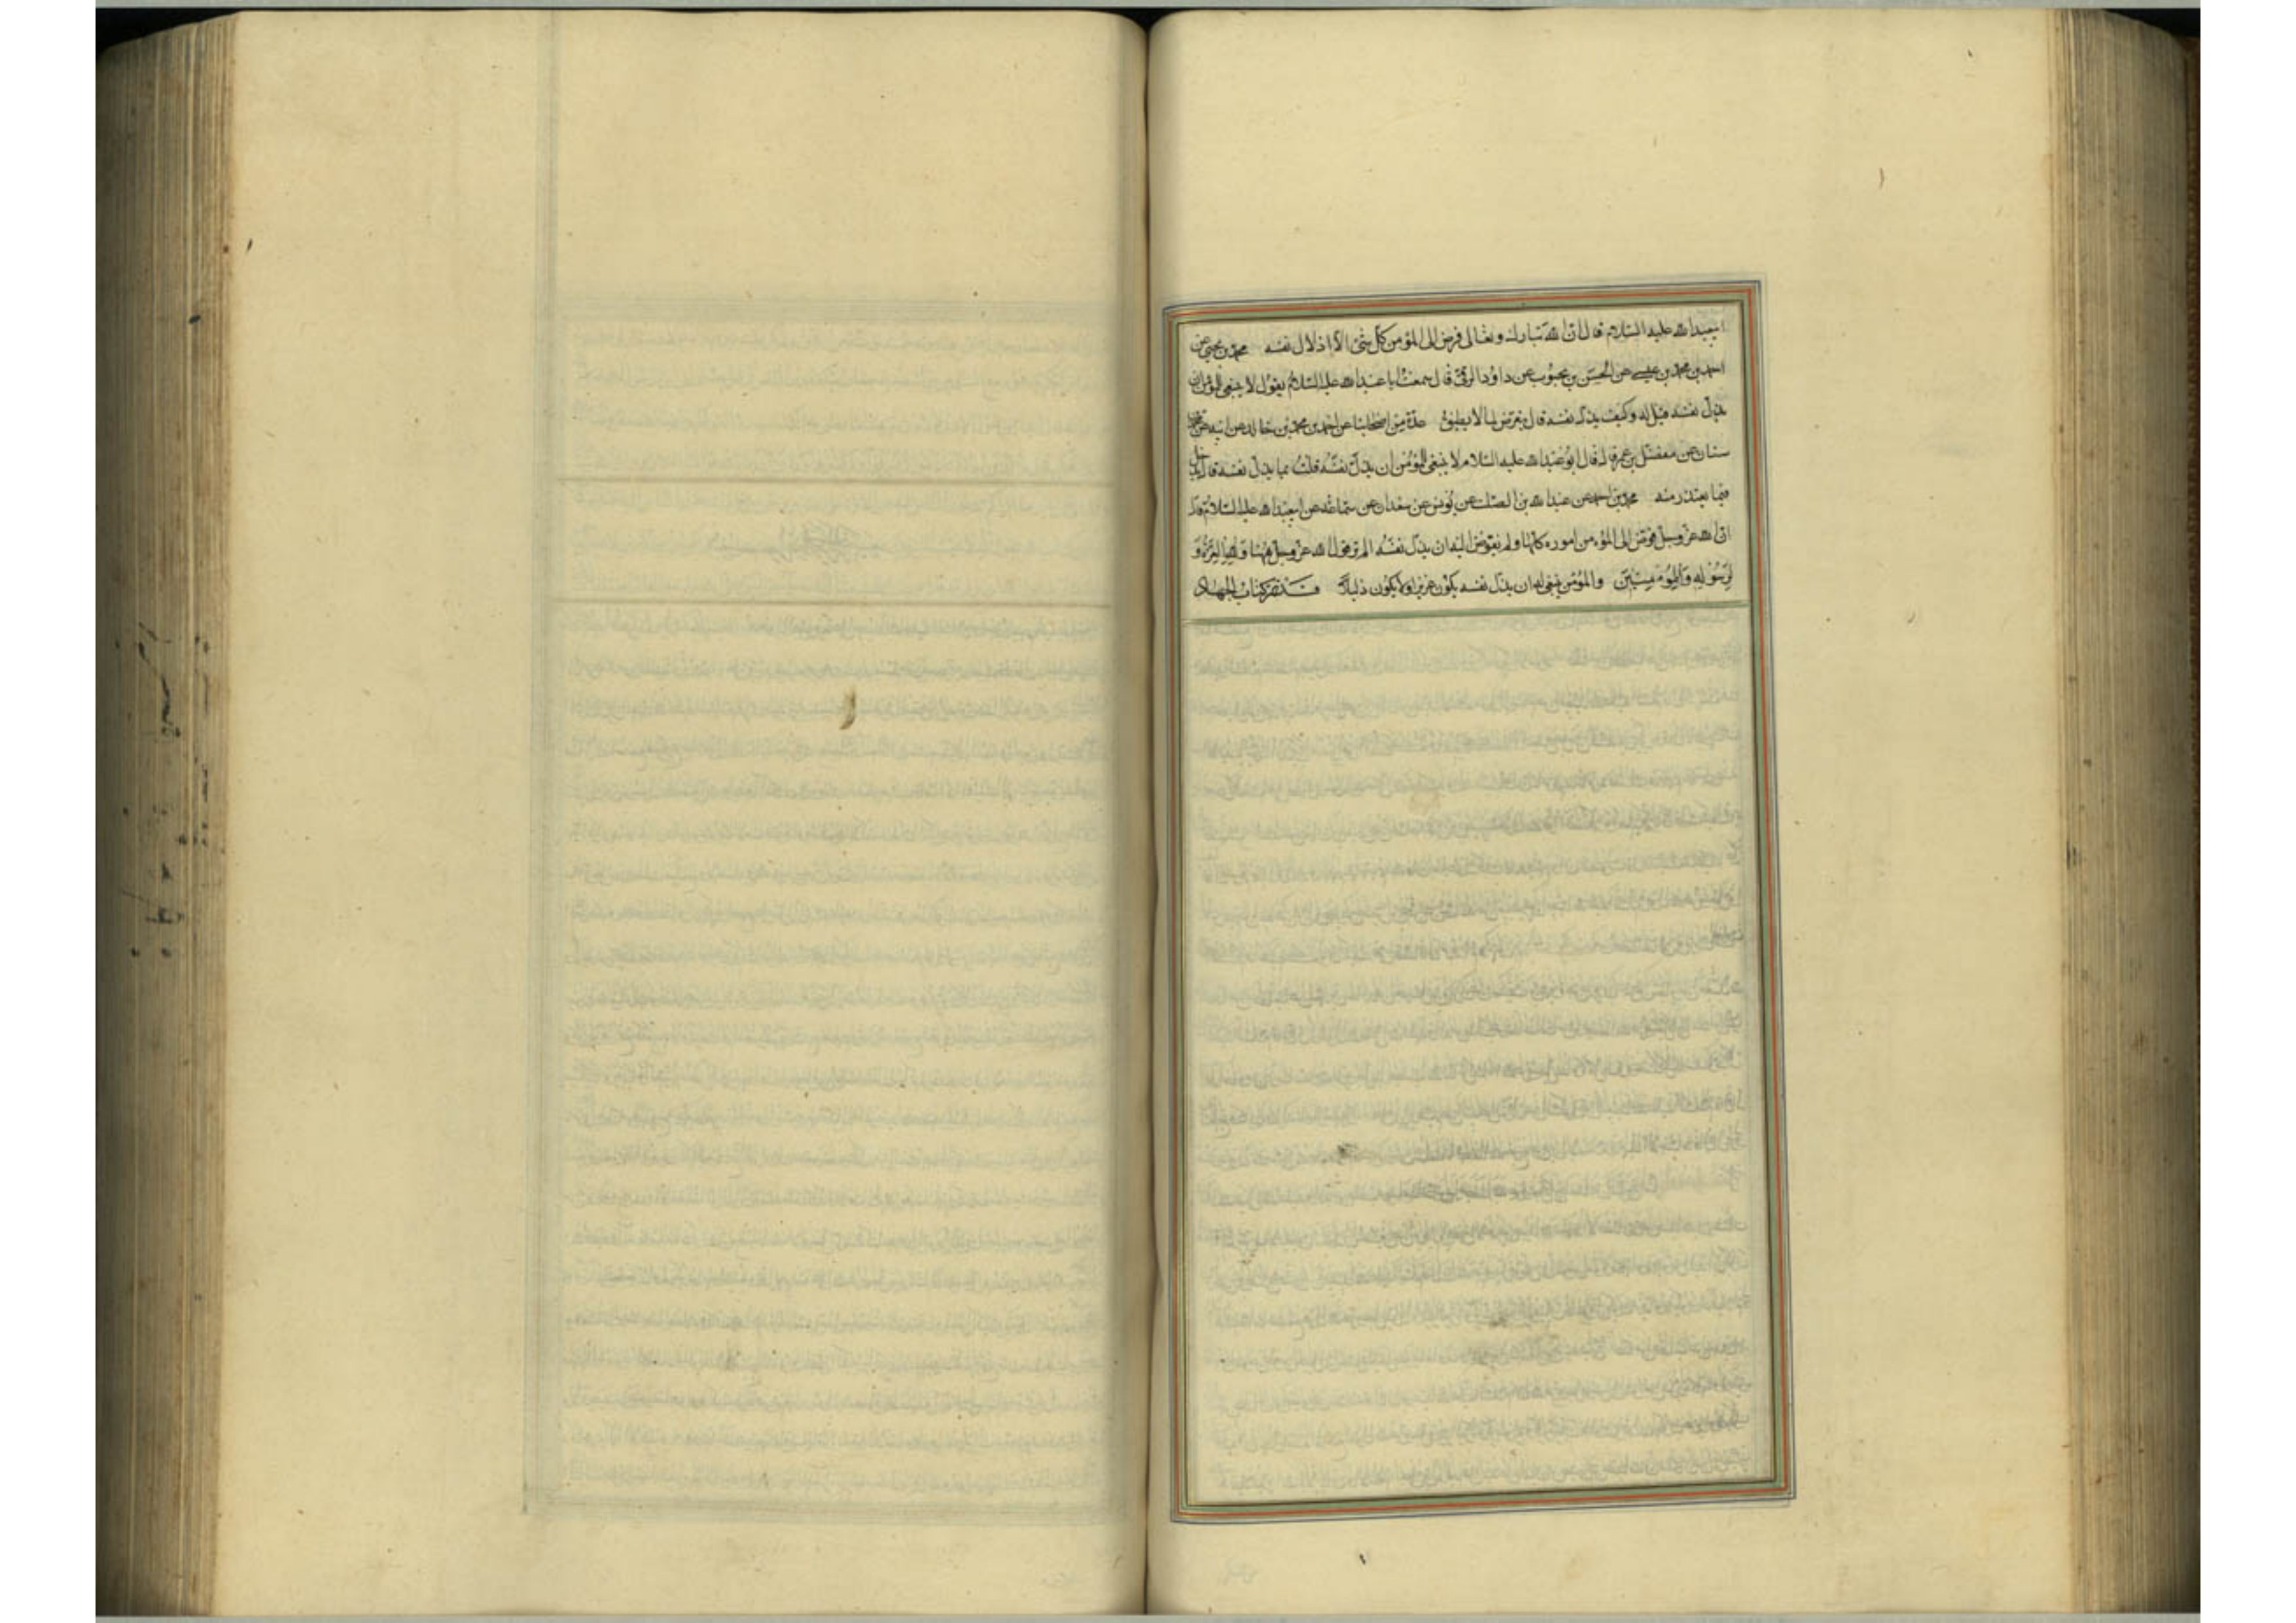 ابیعبدالله علیه السلام قال ان الله تبارک وتعالی فوض الی المؤمن کل شئ الا اذلال نفسه محمد بن یحیی عن
احمد بن محمد بن عیسی عن الحسن بن محبوب عن داود الرقی قال سمعت اباعبدالله علیه السلام یقول لا ینبغی للمؤمن ان
یذل نفسه قیل له وکیف یذل نفسه قال یتعرض لما لا یطیق عدة من اصحابنا عن احمد بن محمد بن خالد عن ابیه عن محمد بن
سنان عن مفضل بن عمر قال قال ابوعبدالله علیه السلام لا ینبغی للمؤمن ان یذل نفسه قلت بما یذل نفسه قال یدخل
فیما یعتذر منه محمد بن احمد عن عبدالله بن الصلت عن یونس عن سعدان عن سماعة عن ابیعبدالله علیه السلام قال
ان الله عز وجل فوض الی المؤمن اموره کلها ولم یفوض الیه ان یذل نفسه الم تر قول الله عز وجل ههنا ولله العزة و
لرسوله وللمؤمنین والمؤمن ینبغی له ان یذل نفسه یکون عزیزا ولا یکون ذلیلا قد تم کتاب الجهاد